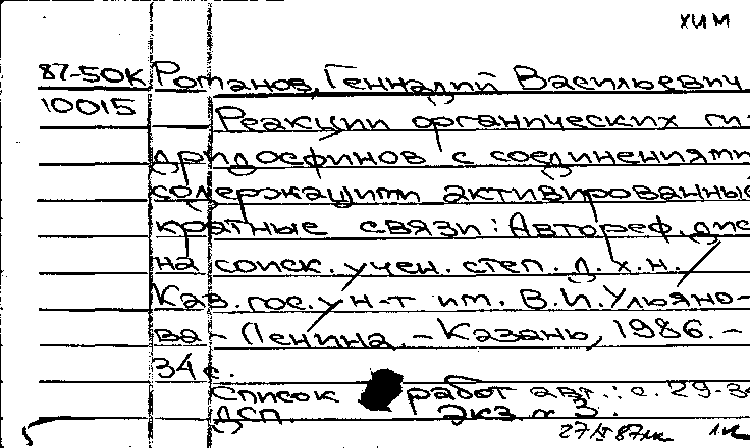 хим
87-50К Романов, Геннадий Васильевич
10015 Реакции органических ги-
дридфосфинов с соединениями
содержащими активированные
кратные связи: Автореф. дис
на соиск. учен. степ. д.х.н.
Каз. гос. ун-т им. В.И. Ульяно-
ва-Ленина. - Казань, 1986. -
34 с.
Список работ авт.: с. 29-34
ДСП. Экз № 3.